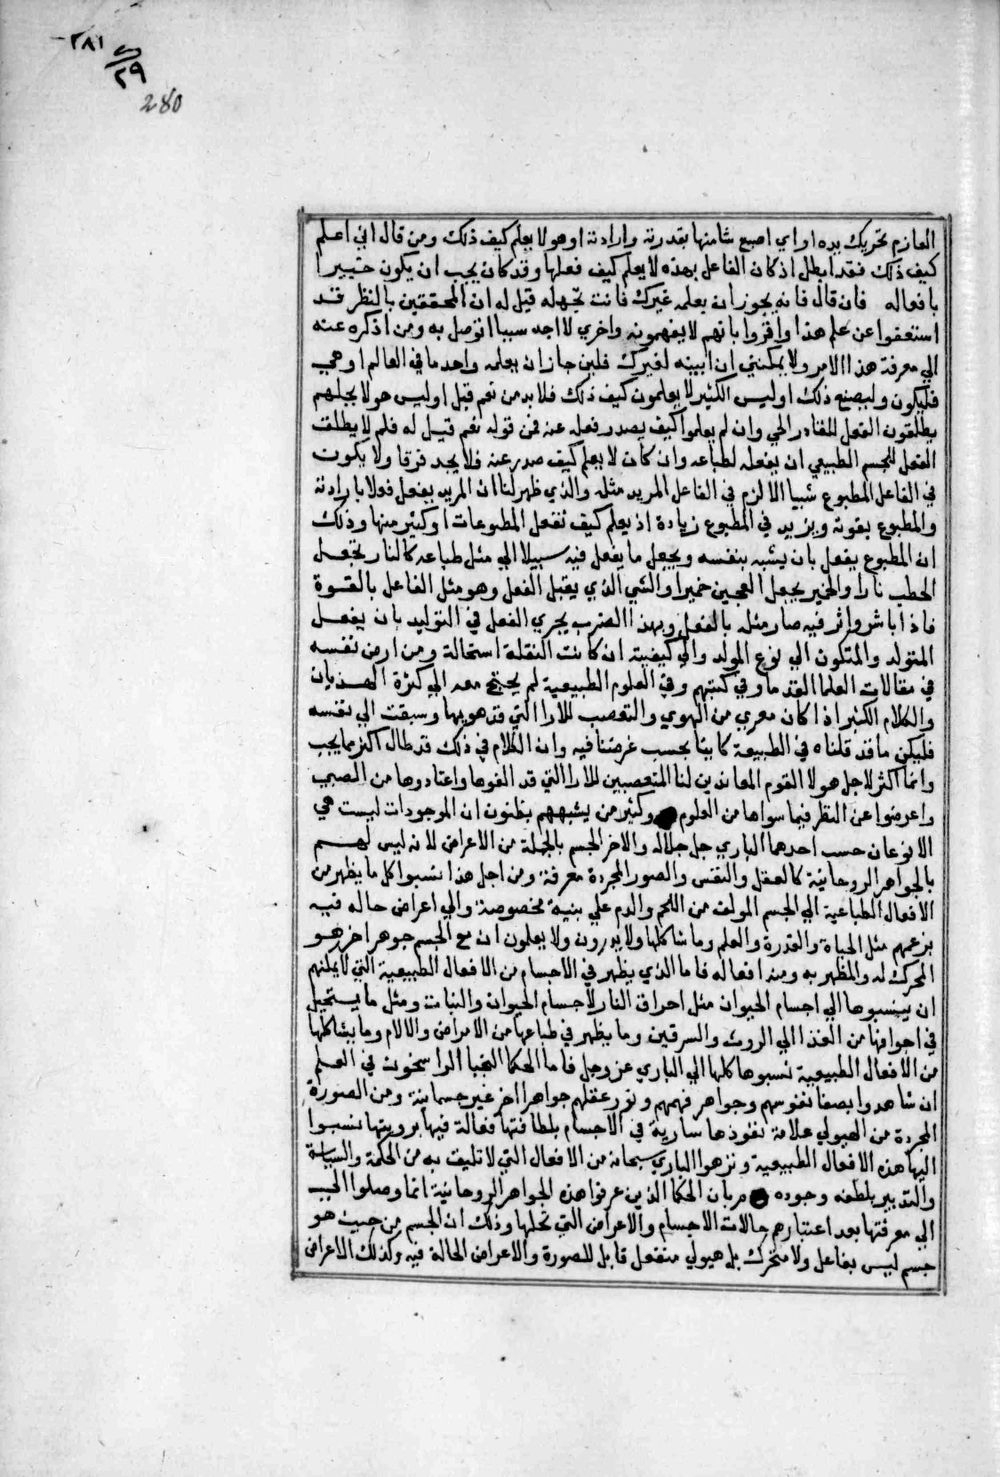 ٢٨١
٢٩
280
العازم تحريك يده او اي اصبع شا منها بقدرته وارادته اوهو لا يعلم كيف ذلك ومن قال اني اعلم
كيف ذلك فقد ابطل اذ كان الفاعل بهذه لا يعلم كيف فعلها وقد كان يجب ان يكون خبيرا
بافعاله فان قال فانه يجوز ان يعلمه غيرك فانت تجهله قيل له ان المحققين بالنظر قد
استعفوا عن علم هذا واقروا بانهم لا يفهمونه واخري لا اجد سببا اتوصل به ومن اذكره عنه
الي معرفة هذا الامر ولا يمكنني ان ابينه لغيرك فلين جاز ان يعلمه واحد ما في العالم او هي
فليكون وليصنع ذلك اوليس الكثير لا يعلمون كيف ذلك فلا بد من نعم قيل اوليس هولا بجلهم
يطلقون الفعل للقادر الحي وان لم يعلموا كيف يصدر فعله عنه فمن قوله نعم قيل له فلم لا يطلقت
الفعل للجسم الطبيعي ان يفعله لطباعه وان كان لا يعلم كيف صدر عنه فلا يجد فرقا ولا يكون
في الفاعل المطبوع شيا الا لزم في الفاعل المريد مثله والذي ظهر لنا ان المريد يفعل فعلا بارادته
والمطبوع بقوته ويزيد في المطبوع زيادة اذ يعلم كيف تفعل المطبوعات او كثير منها وذلك
ان المطبوع يفعل بان يشبه بنفسه ويجعل ما يفعل فيه سبيلا الي مثل طباعه كالنار تجعل
الحطب نارا والخمير يجعل العجين خميرا والشي الذي يقبل الفعل وهو مثل الفاعل بالقوة
فاذا باشر واثر فيه صار مثله بالفعل وبهذا الضرب يجري الفعل في التوليد بان يفعل
المتولد والمتكون الي نوع المولد والي كيفيته ان كانت النقلة استحالة ومن ارمن نفسه
في مقالات العلما القدما وفي كتبهم وفي العلوم الطبيعية لم يحتج معه الي كثرة الهذيان
والكلام الكثير اذا كان معري من الهوي والتعصب للارا التي قد هويها وسبقت الي نفسه
فليكن ما قد قلناه في الطبيعة كافيا بحسب غرضنا فيه وان الكلام في ذلك قد طال اكثر مما يجب
وانما اكثر لاجل هولا القوم المعاندين لنا المتعصبين للارا التي قد الفوها واعتادوها من الصبي
واعرضوا عن النظر فيما سواها من العلوم وكثير من يشبههم يظنون ان الموجودات ليست هي
الا نوعان حسب احدهما الباري جل جلاله والاخر الجسم بالجملة من الاعراض لانه ليس لهم
بالجواهر الروحانية كالعقل والنفس والصور المجردة معرفة ومن اجل هذا نسبوا كل ما يظهر من
الافعال الطباعية الي الجسم المولف من اللحم والدم علي بنية مخصوصة والي اعراض حاله فيه
بزعمهم مثل الحياة والقدرة والعلم وما شاكلها ولا يدرون ولا يعلمون ان مع الجسم جوهر اخر هو
المحرك له والمظهر به ومنه افعاله فاما الذي يظهر في الاجسام من الافعال الطبيعية التي لا يمكنهم
ان ينسبوها الي اجسام الحيوان مثل احراق النار لاجسام الحيوان والنبات ومثل ما يستحيل
في اجوافها من الغذا الي الروث والسرقين وما يظهر في طباعها من الامراض والالام وما يشاكلها
من الافعال الطبيعية نسبوها كلها الي الباري عز وجل فاما الحكما النجبا الراسخون في العلم
ان شاهدوا بصفا نفوسهم وجواهر فهمهم ونور عقلهم جواهرا اخر غير جسمانية ومن الصورة
المجردة من الهيولي علامة نفوذها سارية في الاجسام بلطافتها فعالة فيها برويتها نسبوا
اليها هذه الافعال الطبيعية ونزهوا الباري سبحانه من الافعال التي لا تليق به من الحكمة والسياسة
والتدبير بلطفه وجوده مربان الحكما الذين عرفوا هذه الجواهر الروحانية انما وصلوا الي
الي معرفتها بعد اعتبارهم حالات الاجسام والاعراض التي تحلها وذلك ان الجسم من حيث هو
جسم ليس بفاعل ولا متحرك بل هيولي منفعل قابل للصورة والاعراض الحالة فيه وكذلك الاعراض